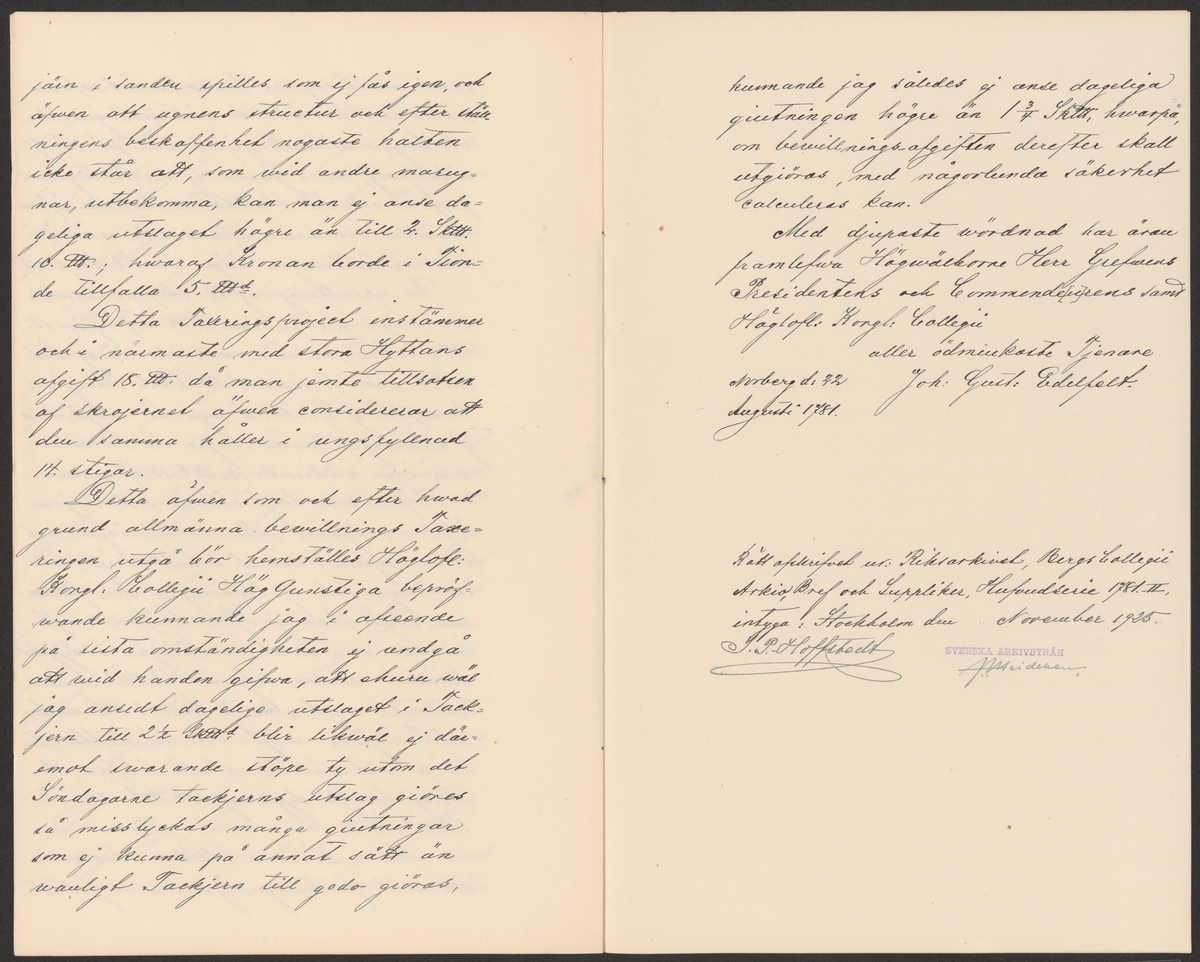 järn i sanden spilles som ej fås igen, och
äfwen att ugnens structur och efter ställ
ningens beskaffenhet nogaste halten
icke står att, som wid andre masug-
nar, utbekomma, kan man ej anse da-
geliga utslaget högre än till 2. Sk℔.
10. ℔.; hwaraf Kronan borde i Tion-
de tillfalla 5. ℔d.
Detta Taxeringsproject instämmer
och i närmaste med stora Hyttans
afgift 18. ℔. då man jemte tillsatsen
af skrojernet äfwen considererar att
den samma håller i ungsfyllnad
14. stigar.
Detta äfwen som och efter hwad
grund allmänna bewillnings Taxe-
ringen utgå bör hemställes Höglofl:
Kongl: Collegii HögGunstiga bepröf-
wande kunnande jag i afseende
på sista omständigheten ej undgå
att wid handen gifwa, att ehuru wäl
jag ansedt dagelige utslaget i Tack-
jern till 2½ Sk℔d blir likwäl ej där-
emot swarande stöpe ty utom det
Söndagarne tackjerns utslag giöres
så misslyckas många giutningar
som ej kunna på annat sätt än
wanligt Tackjern till godo giöras,
kunnande jag således ej anse dageliga
giutningen högre än 1 3/4 Sk℔, hwarpå,
om bewillnings-afgiften derefter skall
utgiöras, med någorlunda säkerhet
calculeras kan.
Med djupaste wördnad har äran
framlefwa Högwälborne Herr Grefwens
Presidentens och Commend[eu]rens samt
Höglofl: Kongl: Collegii
aller ödmiukaste Tjenare
Norberg d: 22 Joh: Gust: Edelfelt.
Augusti 1781.
Rätt afskrifvet ur: Riksarkivet, Bergs Collegii
Arkiv, Bref och Suppliker, Hufvudserie 1781. II,
intyga: Stockholm den November 1925.
J. P. Hoffstedt
SVENSKA ARKIVBYRÅN